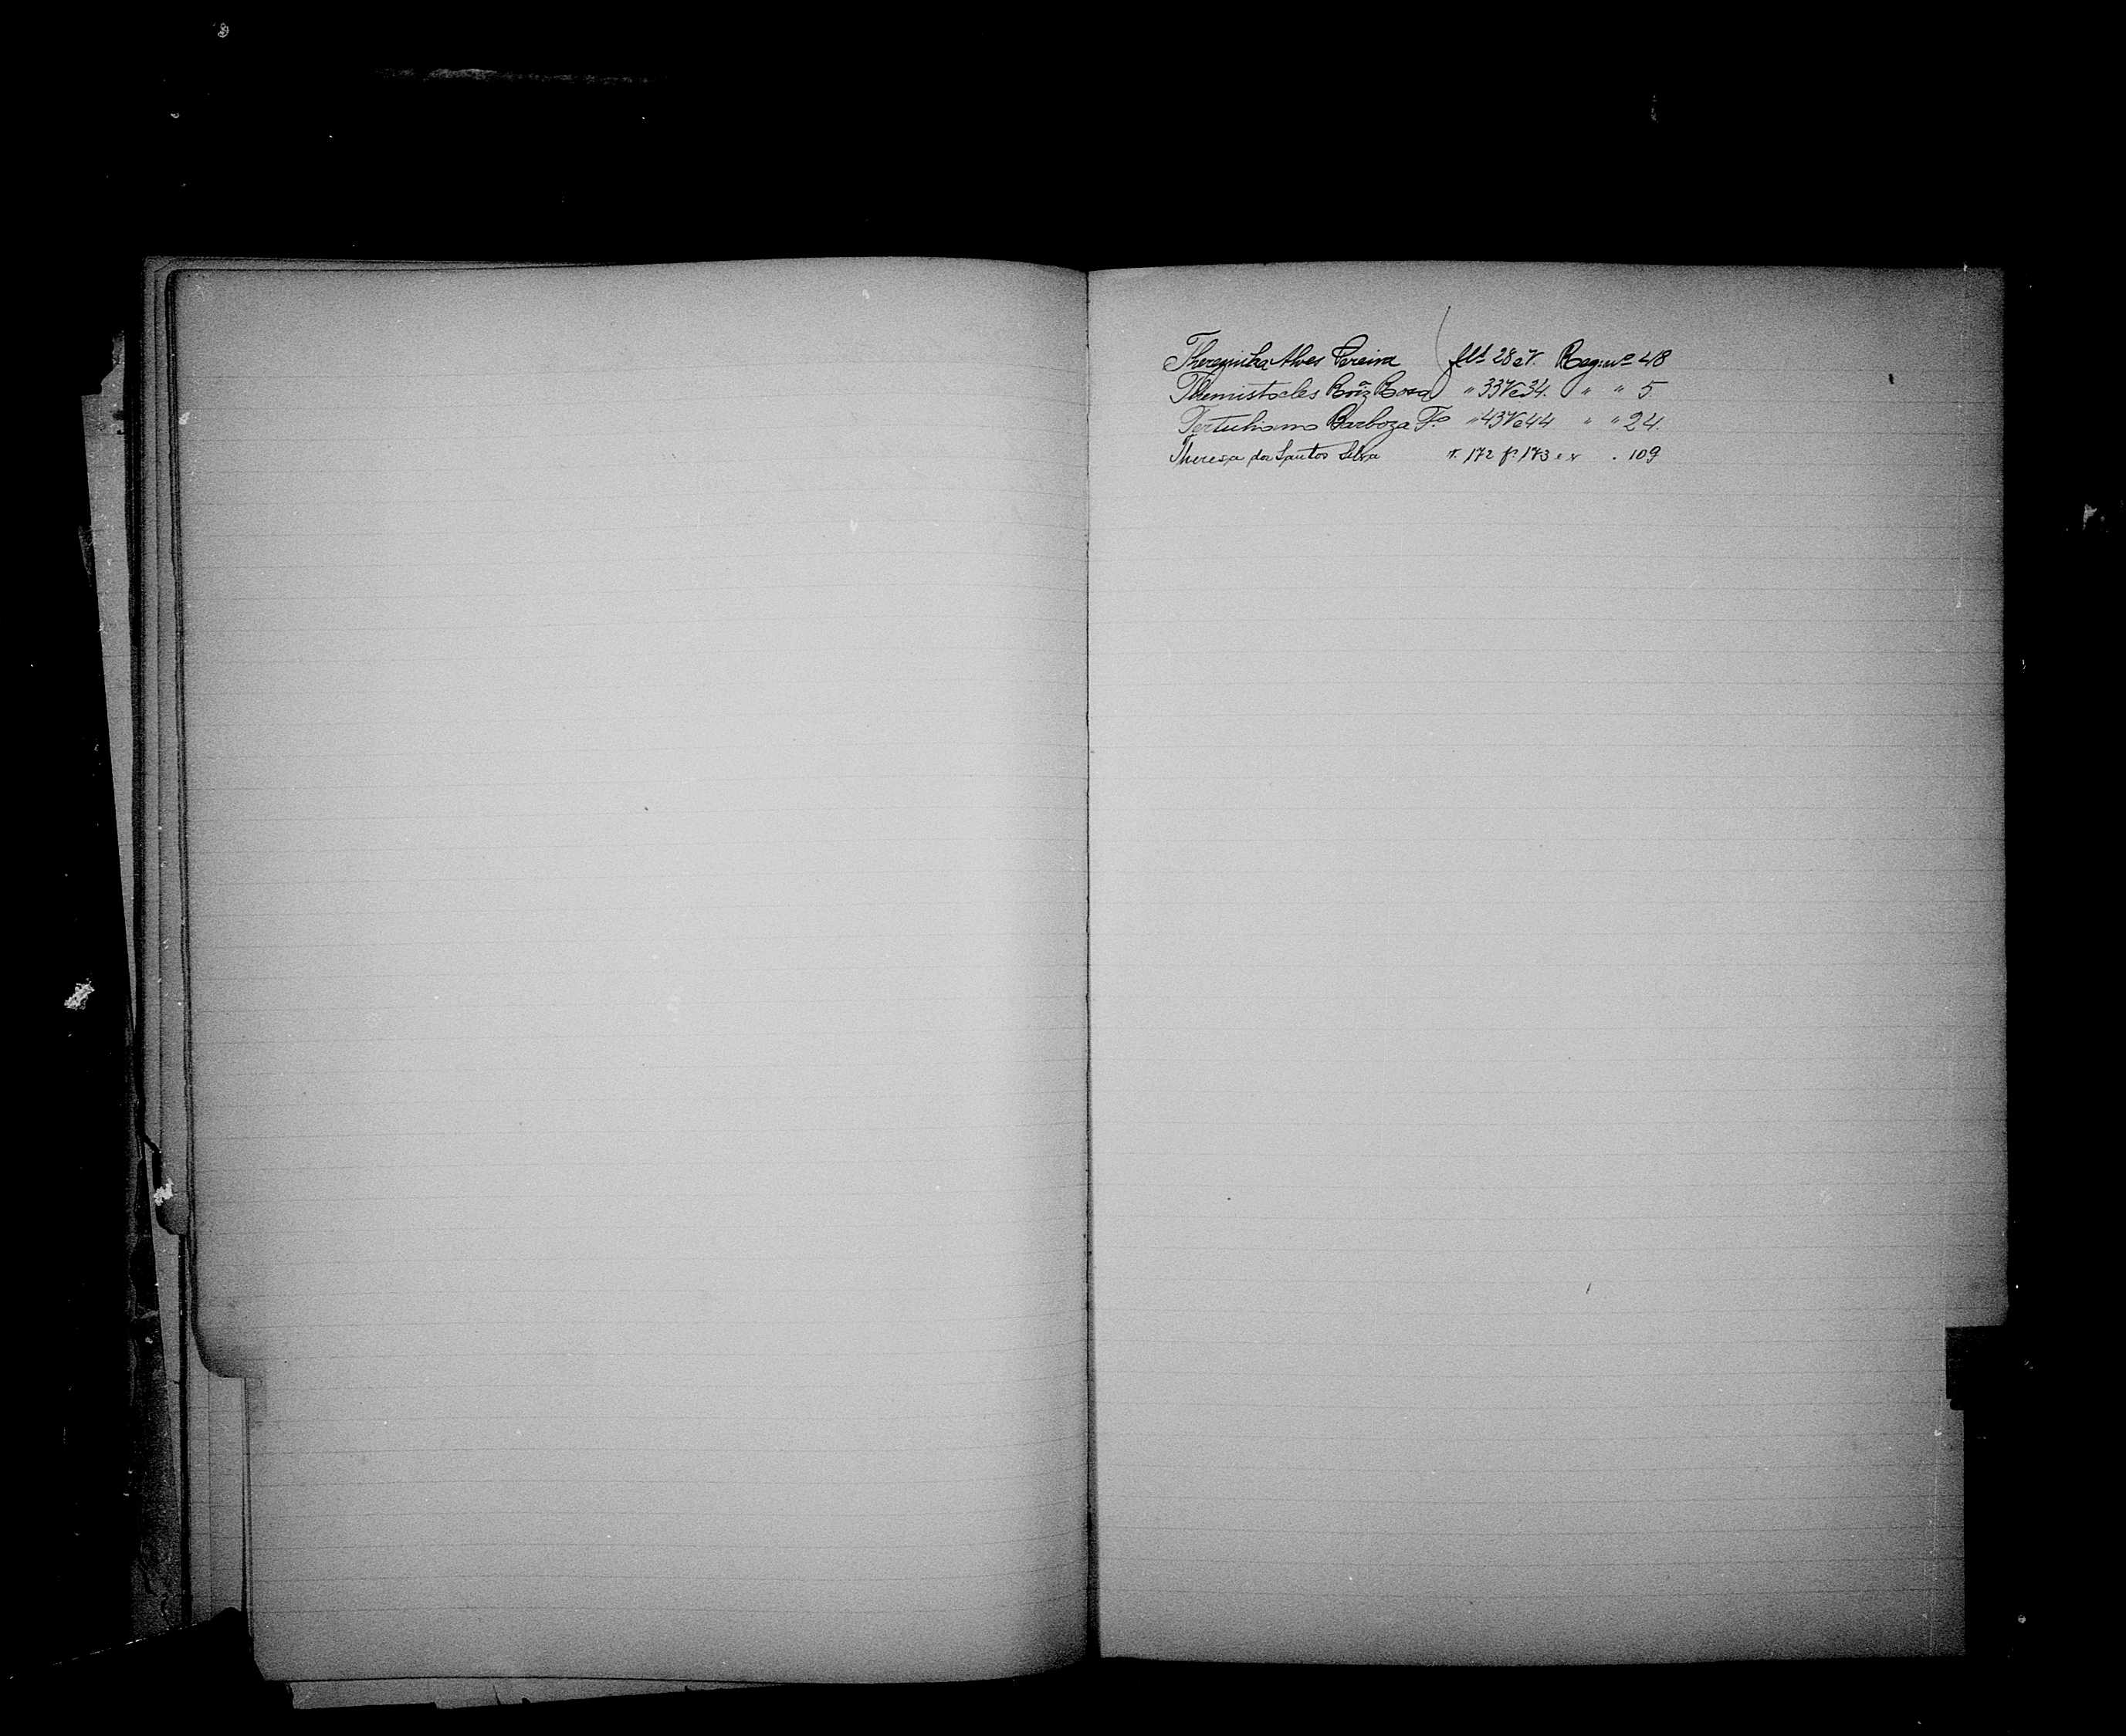 Therezinha Alves Pereira fls 28 e V. Reg: nº 48
Themistocles Roiz Rosa " 33V e 34. " " 5
Tertuliano Barboza Fº " 43V e 44 " " 24.
Theresa dos Santos Silva 172 173 e v . 109